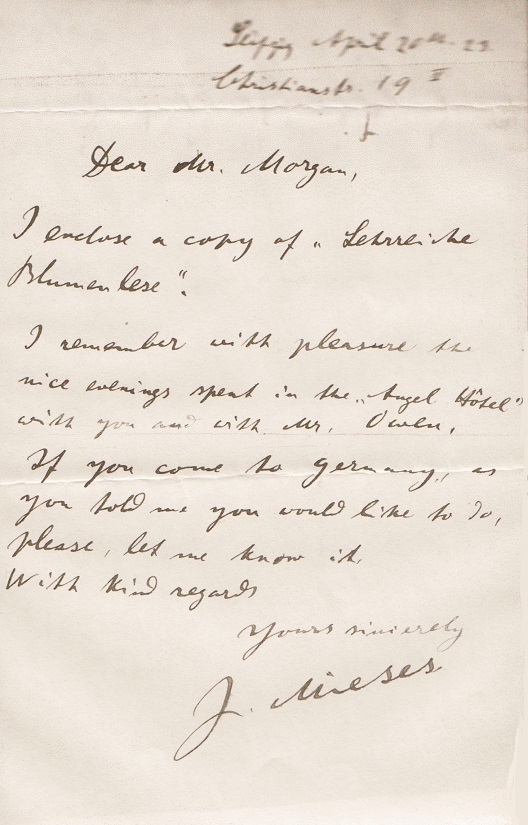 Leipzig April 20th. 23
Christianstr. 19 II
Dear Mr. Morgan,
I enclose a copy of „Lehrreiche
Blumenlese“.
I remember with pleasure the
nice evenings spent in the „Angel Hôtel“
with you and with Mr. Owen.
If you come to Germany, as
you told me you would like to do,
please, let me know it.
With kind regards
Yours sincerely
J. Mieses